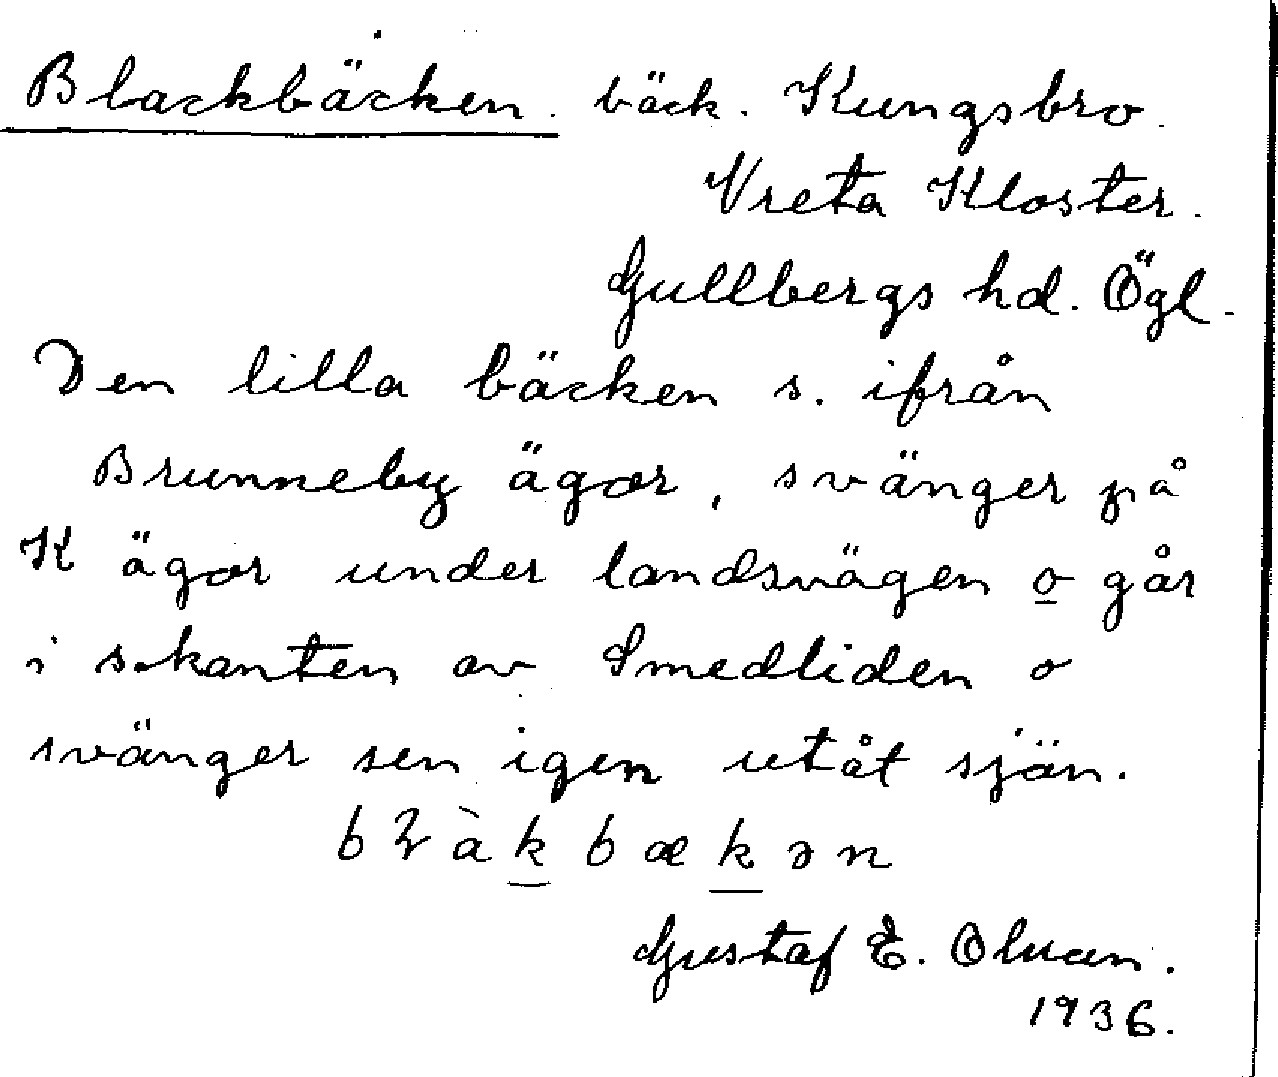 Blackbäcken. bäck. Kungsbro.
Vreta Kloster.
Gullbergs hd. Ögl.
Den lilla bäcken s. ifrån
Brunneby ägor, svänger på
K ägor under landsvägen o går
i s.kanten av Smedliden o
svänger sen igen utåt sjön.
Gustaf E.
1936.